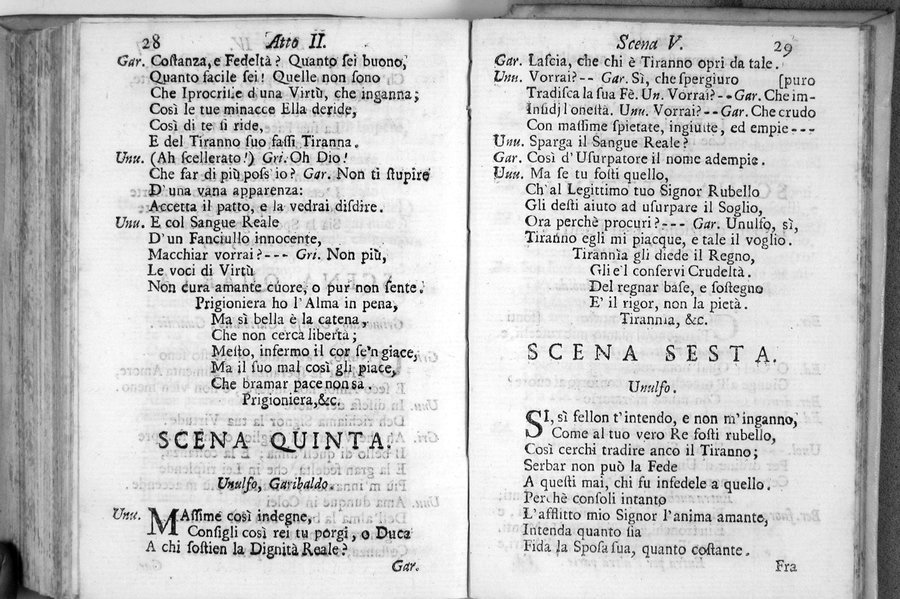 28 Atto II.
Gar. Costanza, e Fedeltà? Quanto sei buono,
Quanto facile sei! Quelle non sono
Che Iprocrisie d'una Virtù, che inganna;
Così le tue minacce Ella deride,
Così di te si ride,
E del Tiranno suo fassi Tiranna.
Unu. (Ah scellerato!) Gri. Oh Dio!
Che far di più poss'io? Gar. Non ti stupire
D'una vana apparenza:
Accetta il patto, e la vedrai disdire.
Unu. E col Sangue Reale
D'un Fanciullo innocente,
Macchiar vorrai?--- Gri. Non più,
Le voci di Virtù
Non cura amante cuore, o pur non sente.
Prigioniera ho l'Alma in pena,
Ma sì bella è la catena,
Che non cerca libertà;
Mesto, infermo il cor se'n giace,
Ma il suo mal così gli piace,
Che bramar pace non sa.
Prigioniera, &c.
SCENA QUINTA.
Unulfo, Garibaldo.
Unu. MAssime così indegne,
Consigli così rei tu porgi, o Duca
A chi sostien la Dignità Reale?
Gar.
Scena V. 29
Gar. Lascia, che chi è Tiranno opri da tale.
Unu. Vorrai?-- Gar. Sì, che spergiuro [puro
Tradisca la sua Fè. Un. Vorrai?-- Gar. Che im-
Insidj l'onestà. Unu. Vorrai?-- Gar. Che crudo
Con massime spietate, ingiuste, ed empie---
Unu. Sparga il Sangue Reale?
Gar. Così d'Usurpatore il nome adempie.
Unu. Ma se tu fosti quello,
Ch'al Legittimo tuo Signor Rubello
Gli desti aiuto ad usurpare il Soglio,
Ora perchè procuri?--- Gar. Unulfo, sì,
Tiranno egli mi piacque, e tale il voglio.
Tirannìa gli diede il Regno,
Gli e'l conservi Crudeltà.
Del regnar base, e sostegno
E' il rigor, non la pietà.
Tirannìa, &c.
SCENA SESTA.
Unulfo.
SI, sì fellon t'intendo, e non m'inganno,
Come al tuo vero Re fosti rubello,
Così cerchi tradire anco il Tiranno;
Serbar non può la Fede
A questi mai, chi fu infedele a quello.
Perchè consoli intanto
L'afflitto mio Signor l'anima amante,
Intenda quanto sia
Fida la Sposa sua, quanto costante.
Fra